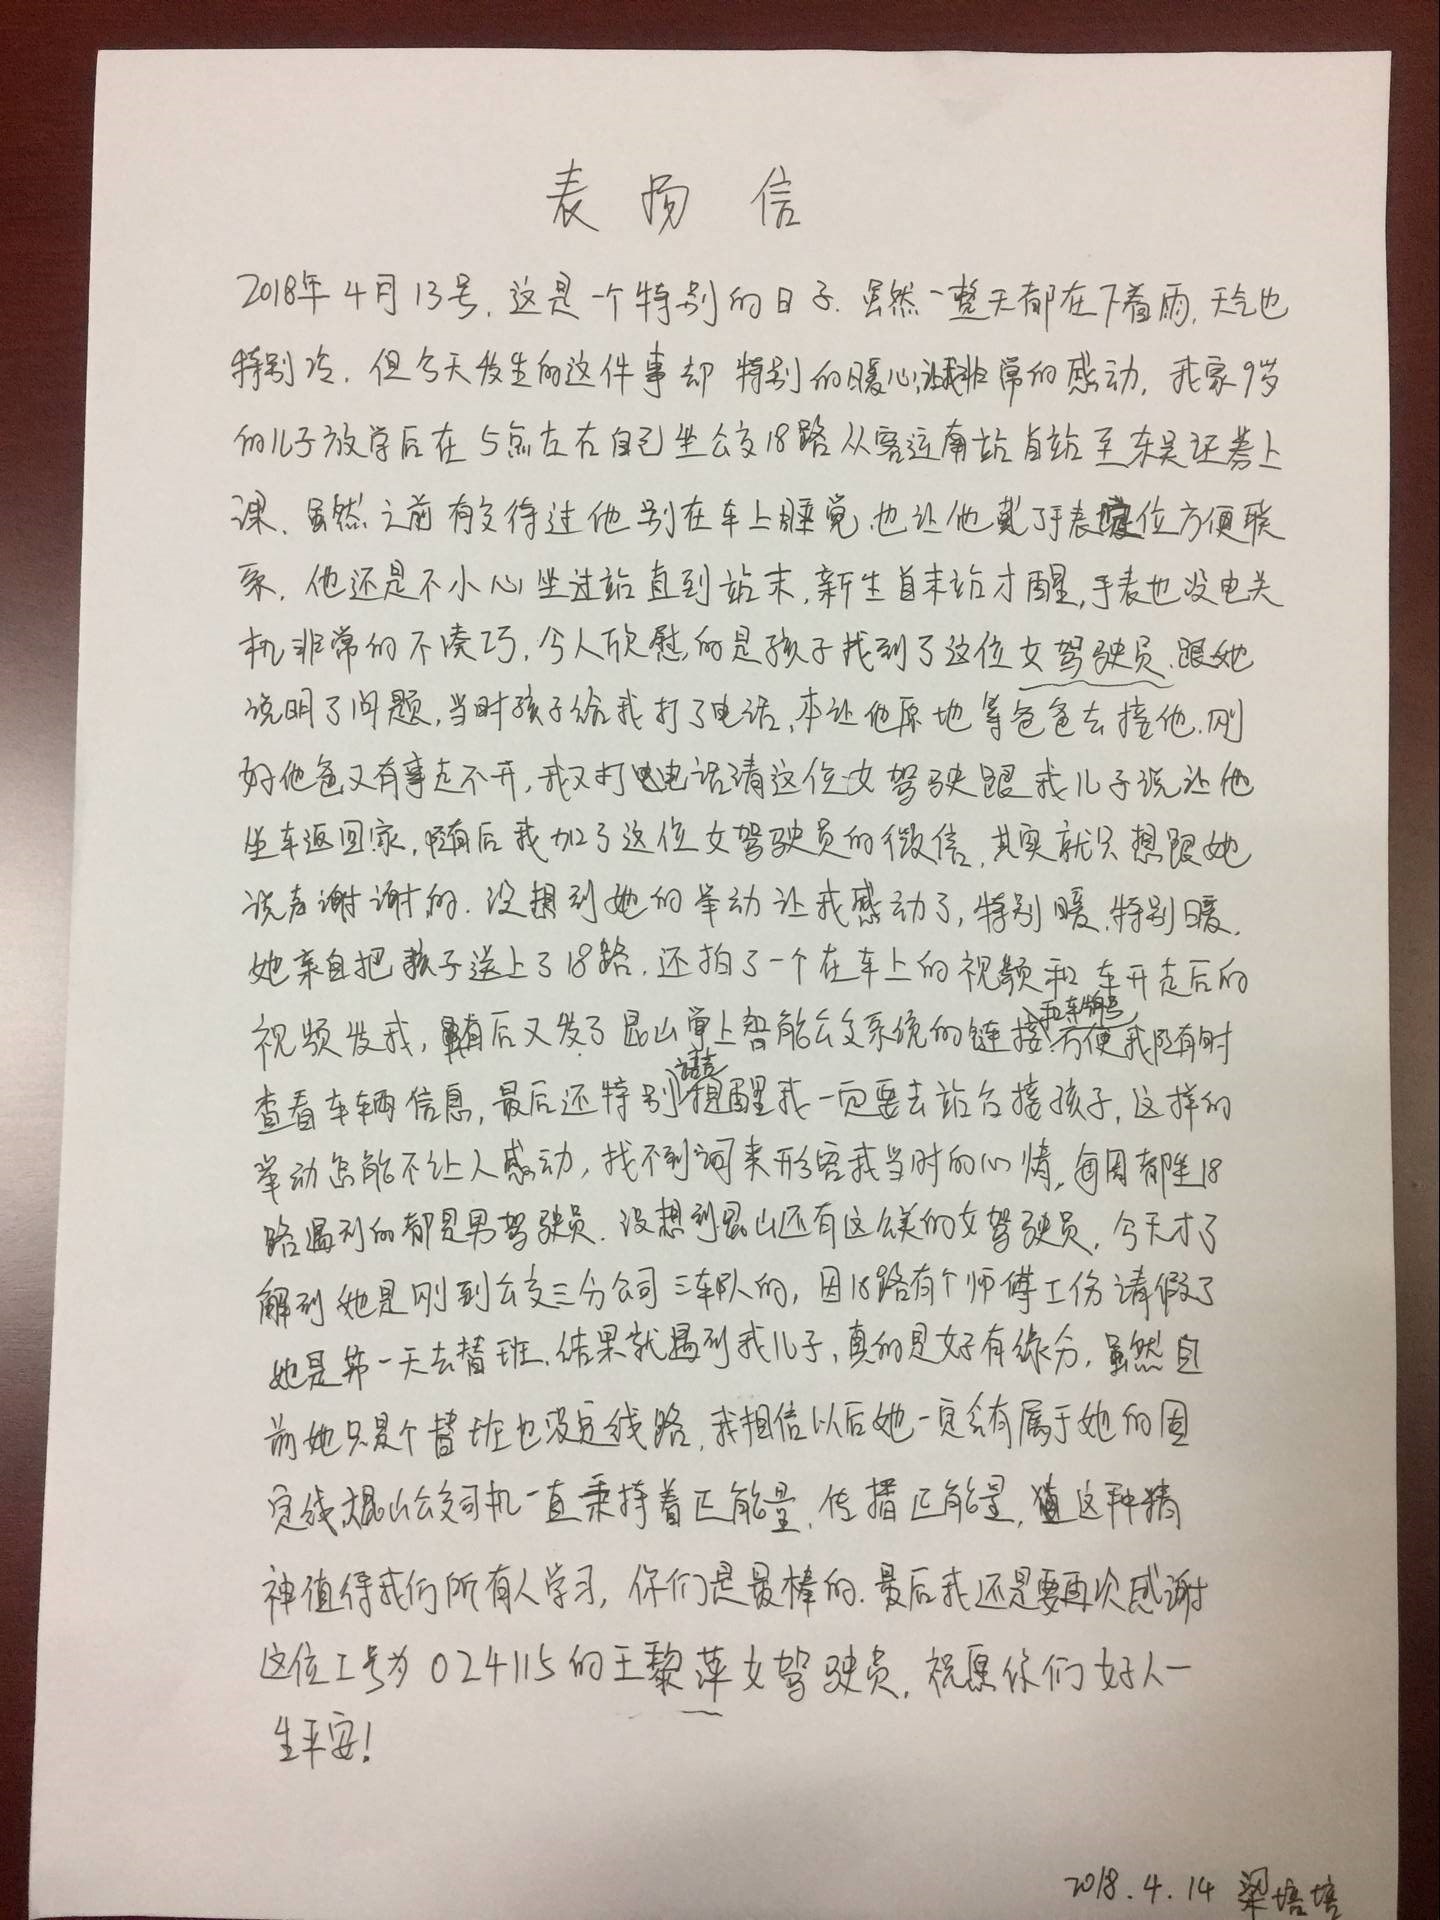 表扬信
2018年4月13号,这是一个特别的日子.虽然一整天都在下着雨,天气也
特别冷,但今天发生的这件事却特别的暖心,让我非常的感动,我家9岁
的儿子放学后在5点左右自己坐公交18路从客运南站首站至东吴证券上
课,虽然之前有交待过他别在车上睡觉,也让他戴了手表定位方便联
系,他还是不小心坐过站直到站末,新生首末站才醒,手表也没电关
机非常的不凑巧,令人欣慰的是孩子找到了这位女驾驶员.跟她
说明了问题,当时孩子给我打了电话,本让他原地等爸爸去接他.刚
好他爸又有事走不开,我又打电话请这位女驾驶跟我儿子说让他
坐车返回家,随后我加了这位女驾驶员的微信,其实就只想跟她
说声谢谢的.没想到她的举动让我感动了,特别暖.特别暖.
她亲自把孩子送上了18路.还拍了一个在车上的视频和车开走后的
视频发我,随后又发了昆山掌上智能公交系统的链接和车牌号方便我随时
查看车辆信息,最后还特别语音提醒我一定要去站台接孩子,这样的
举动怎能不让人感动,找不到词来形容我当时的心情,每周都坐18
路遇到的都是男驾驶员.没想到昆山还有这么美的女驾驶员,今天才了
解到她是刚到公交三分公司三车队的,因18路有个师傅工伤请假了
她是第一天去替班.结果就遇到我儿子,真的是好有缘分,虽然目
前她只是个替班也没定线路,我相信以后她一定会有属于她的固
定线,昆山公交司机一直秉持着正能量,传播正能量,这种精
神值得我们所有人学习,你们是最棒的.最后我还是要再次感谢
这位工号为024115的王黎萍女驾驶员,祝愿你们好人一
生平安!
2018.4.14 梁培培